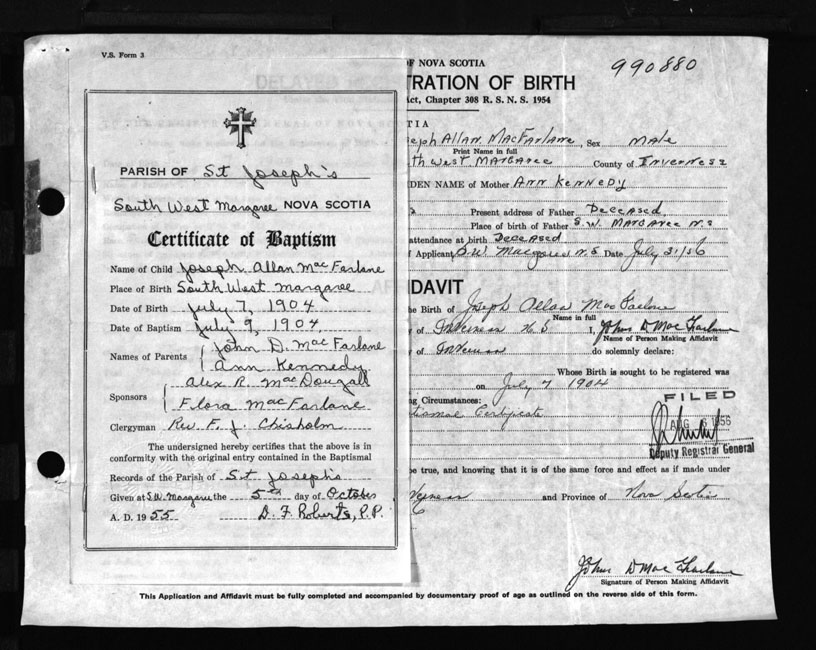 V.S. Form 3
PARISH OF St Joseph's
South West Margaree NOVA SCOTIA
Certificate of Baptism
Name of Child Joseph Allan MacFarlane
Place of Birth South West Margaree
Date of Birth July 7, 1904
Date of Baptism July 9, 1904
Names of Parents John D. MacFarlane
Ann Kennedy
Sponsors Alex R. MacDougall
Flora MacFarlane
Clergyman Rev. F. J. Chisholm
The undersigned hereby certifies that the above is in
conformity with the original entry contained in the Baptismal
Records of the Parish of St Joseph's
Given at S.W. Margaree the 5th day of October
A. D. 1955 D. F. Roberts, P.P.
OF NOVA SCOTIA
990880
TRATION OF BIRTH
Act, Chapter 308 R. S. N. S. 1954
TIA
eph Allan MacFarlane, Sex male
Print Name in full
th West Margaree County of Inverness
DEN NAME of Mother Ann Kennedy
Present address of Father Deceased
Place of birth of Father S.W. Margaree N.S
attendance at birth Deceased
of Applicant S.W. Margaree N.S Date July 31/56
DAVIT
he Birth of Joseph Allan MacFarlane
Name in full
of Inverness N S I, John D MacFarlane
Name of Person Making Affidavit
of Inverness do solemnly declare:
Whose Birth is sought to be registered was
on July 7 1904
ng Circumstances:
tismal Certificate
FILED
AUG 1956
Deputy Registrar General
be true, and knowing that it is of the same force and effect as if made under
and Province of Nova Scotia
John D MacFarlane
Signature of Person Making Affidavit
This Application and Affidavit must be fully completed and accompanied by documentary proof of age as outlined on the reverse side of this form.